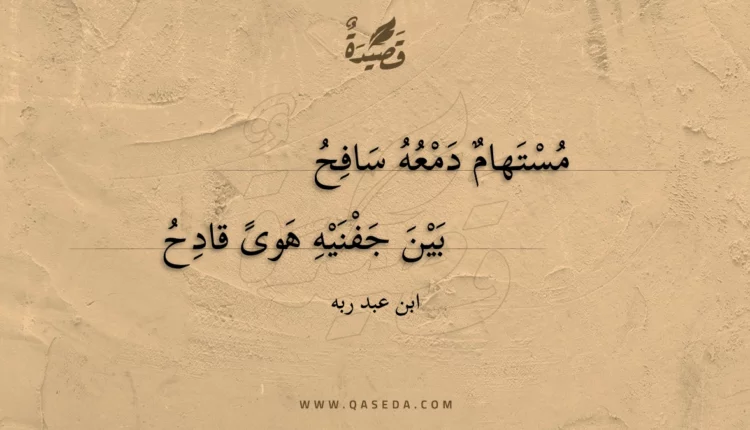 قَصِيْدَةٌ
مُسْتَهامٌ دَمْعُهُ سَافِحُ
بَيْنَ جَفْنَيْهِ هَوىً قادِحُ
ابن عبد ربه
WWW.QASEDA.COM